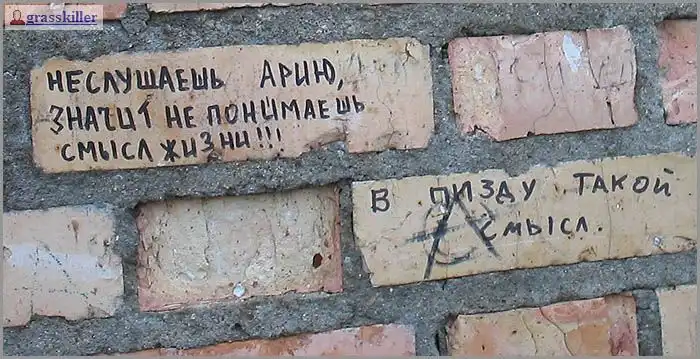 grasskiller
НЕСЛУШАЕШЬ АРИЮ,
ЗНАЧИТ НЕ ПОНИМАЕШЬ
СМЫСЛ ЖИЗНИ!!!
В ПИЗДУ ТАКОЙ
СМЫСЛ.